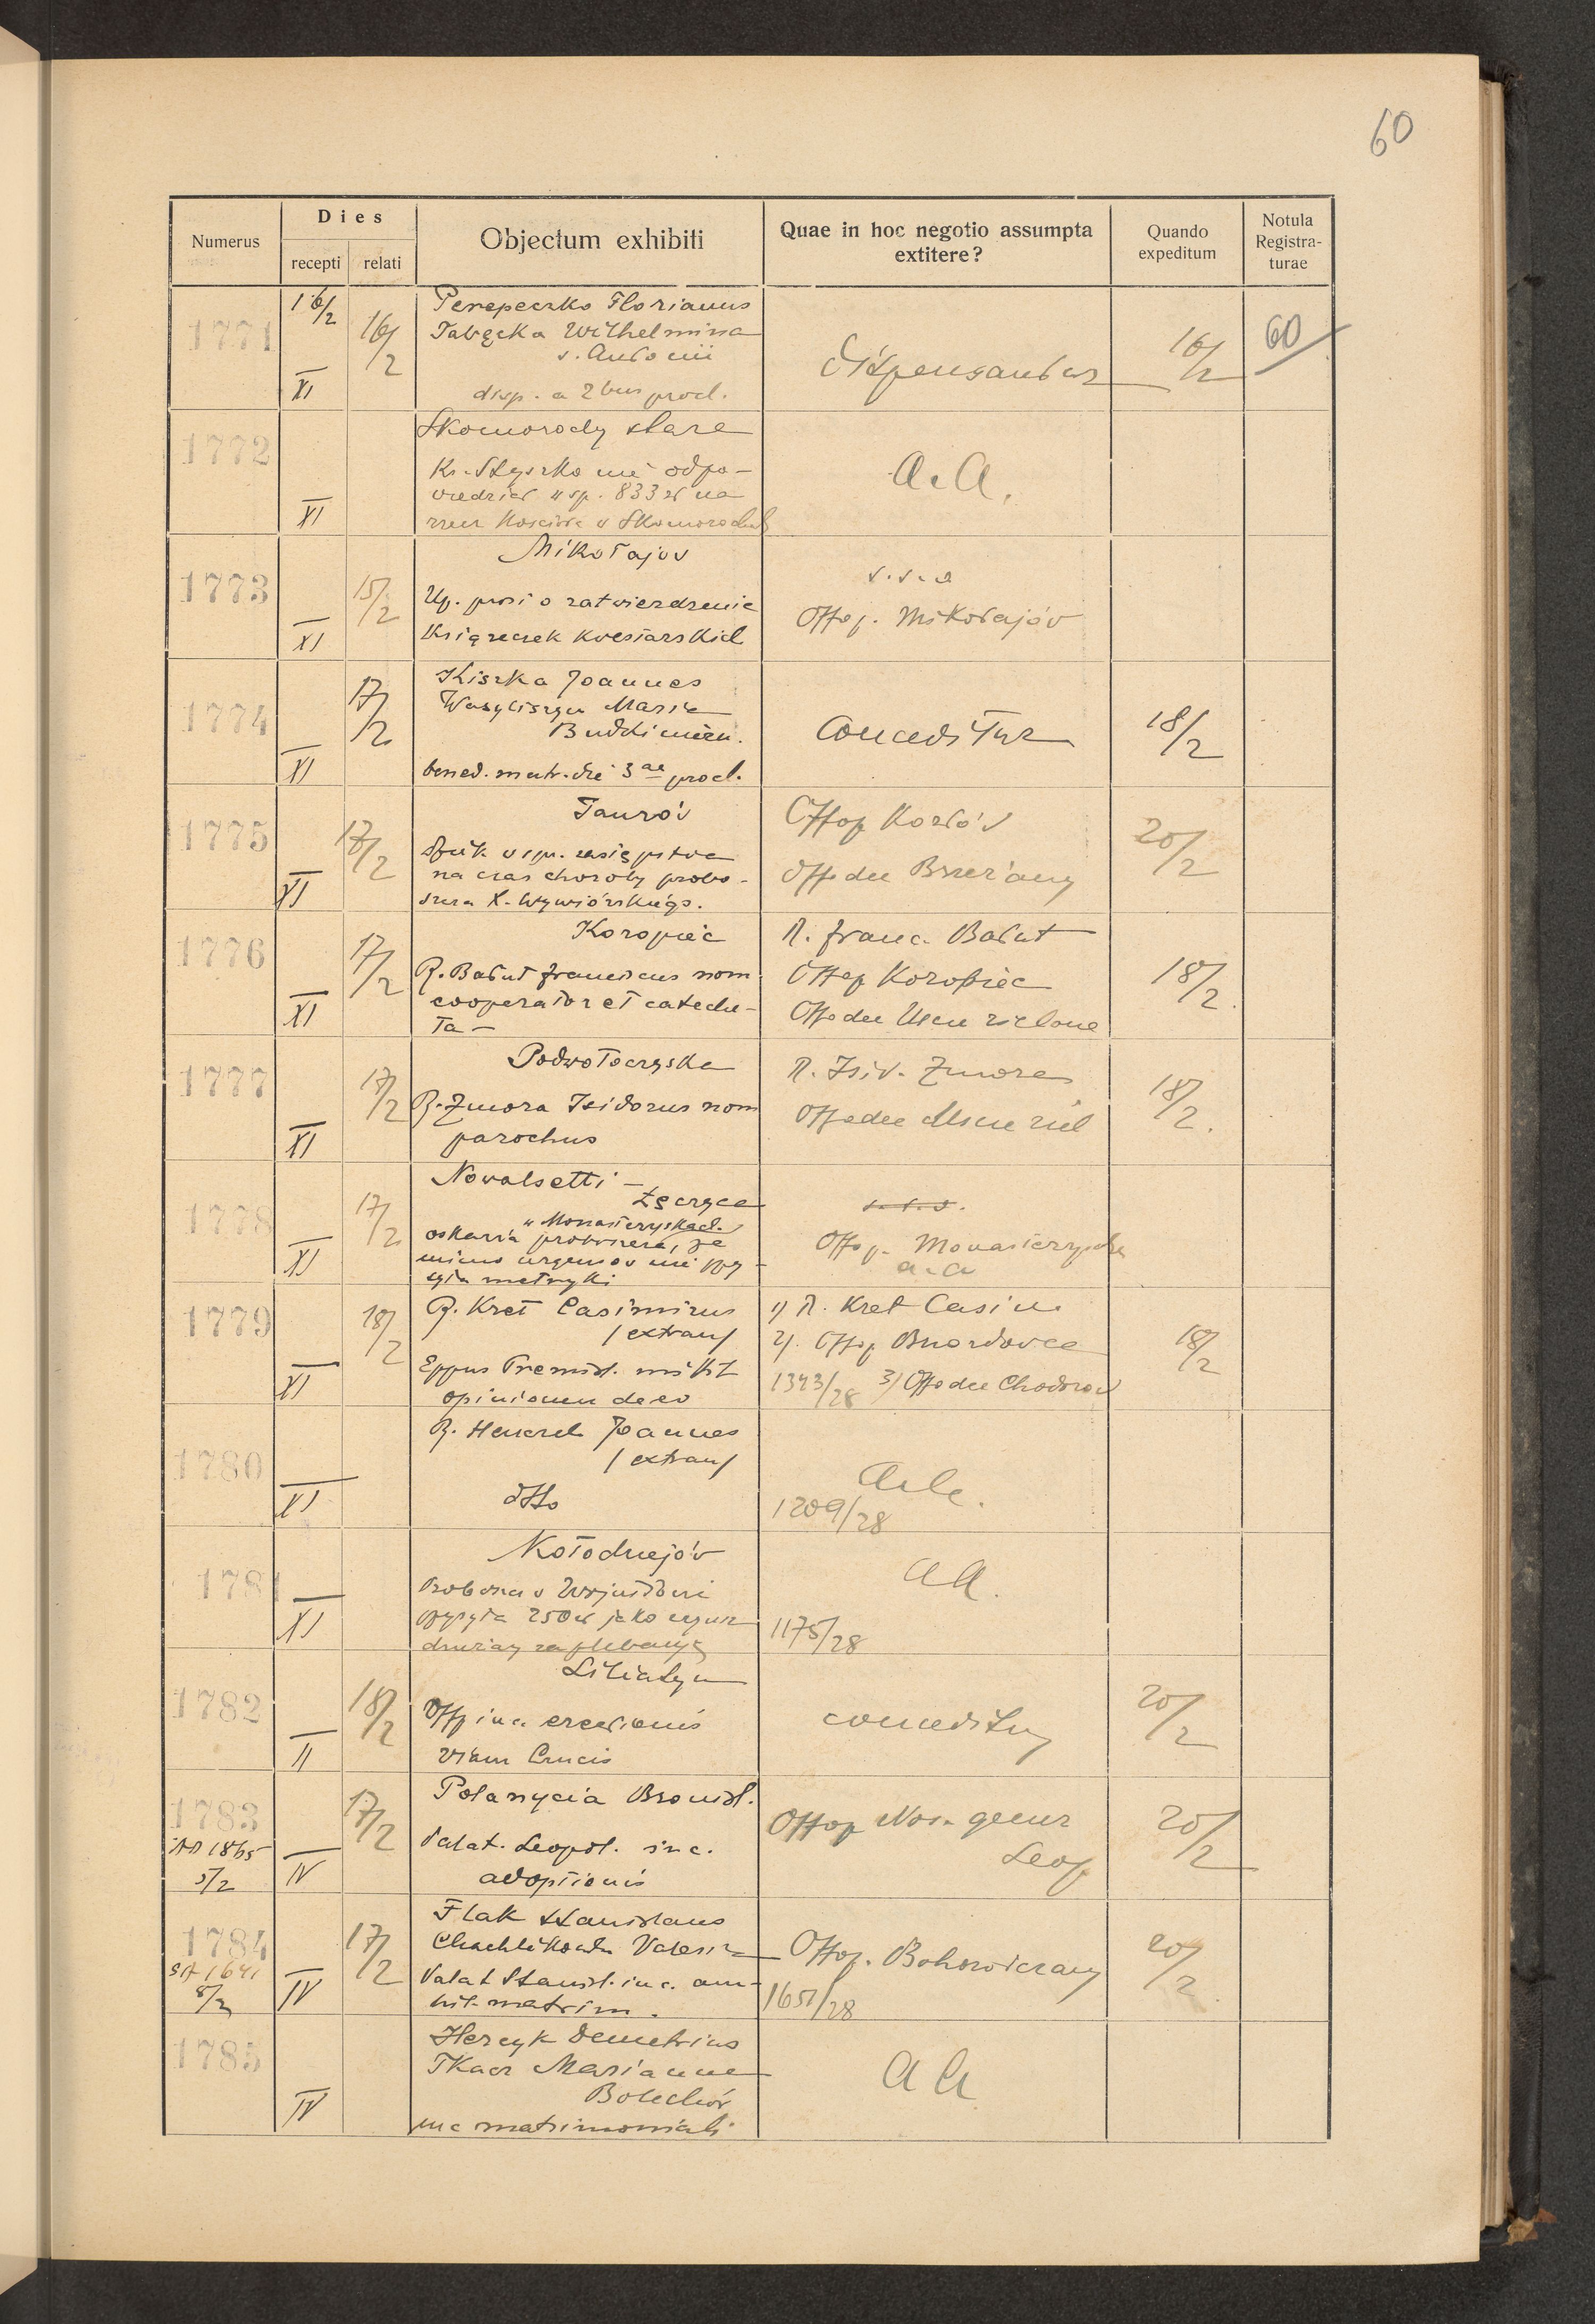 60
Numerus
Dies
recepti
relati
Objectum exhibiti
Quae in hoc negotio assumpta
extitere?
Quando
expeditum
Notula
Registra-
turae
1771
16/2
XI
16/2
Perepeczko Florianus
Wilhelmina
s. Antonii
disp. a 2bus procl.
dispensantur
16/2
60
1772
XI
Skomorochy stare
Ks. Szyszko nie odpo-
wiedział w sp. 833 zł na
rzecz kościoła w Skomorochach
a.a.
1773
XI
15/2
Mikołajov
Up. prosi o zatwierdzenie
książeczek kvestarskich
v.s.a
Offop. Mikołajóv
1774
XI
17/2
Kiszka Joannes
Wasyliszyn Maria
bened. matr. die 3ae procl.
conceditur
18/2
1775
XI
17/2
Tauróv
v spr. zastępstva
na czas choroby probo-
szcza X. Wywiórskiego.
Offop Kozlóv
Offodec Brzeżany
20/2
1776
XI
17/2
Koropiec
R. Bałut Franciscus nom
cooperator et cateche-
ta -
R. Franc. Bałut
Offop Koropiec
Offodec Uście zielone
18/2.
1777
XI
17/2
Podwołoczyska
R. Zmora Isidorus nom
parochus
R. Isid. Zmora
Offodec Uście ziel
18/2.
1778
XI
17/2
Novalsetti -
Łęczyca
v Monasteryskach
oskarża proboszcza, że
mimo urgensov nie
metryki
v.s.a.
Offop. Monasterzyska
a.a
1779
XI
18/2
R. Kret Casimirus
/extran/
Eppus Premisl. mittit
opinionem de eo
1) R. Kret Casim
2). Offop
1343/28 3) Offodec Chodorov
18/2
1780
XI
R. Joannes
/extran/
dtto
a.a.
1209/28
1781
XI
Kołodziejóv
250 zł jako
dzierżavy za plebanję
aa.
1175/28
1782
II
18/2
Liliatyn
Off in c. erectionis
Viam Crucis
conceditur
20/2
1783
AD 1865
5/2
IV
17/2
Polanycia Bronisl.
Palat. Leopol. in c.
adoptionis
Offop
Leop
20/2
1784
SA 1641
8/2
IV
17/2
Flak Stanislaus
Valeria
Palat Stanisl. in c. an-
nil. matrim.
Offop. Bohorodczany
1651/28
20/2
1785
IV
Hercyk Demetrius
Tkacz Marianna
Bolechóv
in c matrimoniali
aa